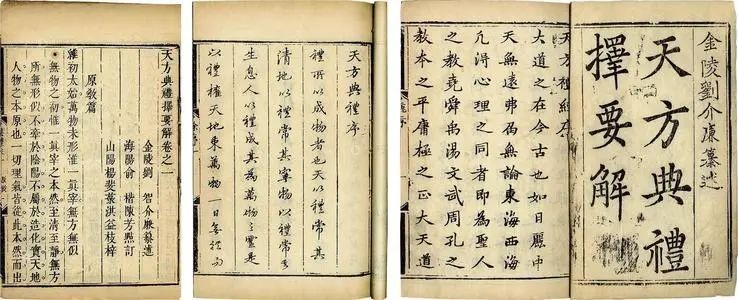 金陵劉介廉纂述
天方典禮
擇要解
天方禮經序
大道之在今古也如日麗中
天無遠弗屆無論東海西海
凢得心理之同者即為聖人
之教堯舜禹湯文武周孔之
教本之平庸極之正大天道
天方典禮序
禮所以成物者也天以禮常其
清地以禮常其寧物以禮常其
生息人以禮成其為萬物之靈是
以禮權天地束萬物一日無禮則
天方典禮擇要解卷之一
金陵劉 智介廉纂述
海陽俞 楷陳芳點訂
山陽楊斐菉洪益枝梓
原教篇
維初太始萬物未形惟一真宰無方無似
無物之初惟一真宰之本然至清至靜無方
所無形似不牽於陰陽不屬於造化實天地
人物之本原也一切理氣皆從此本然而出